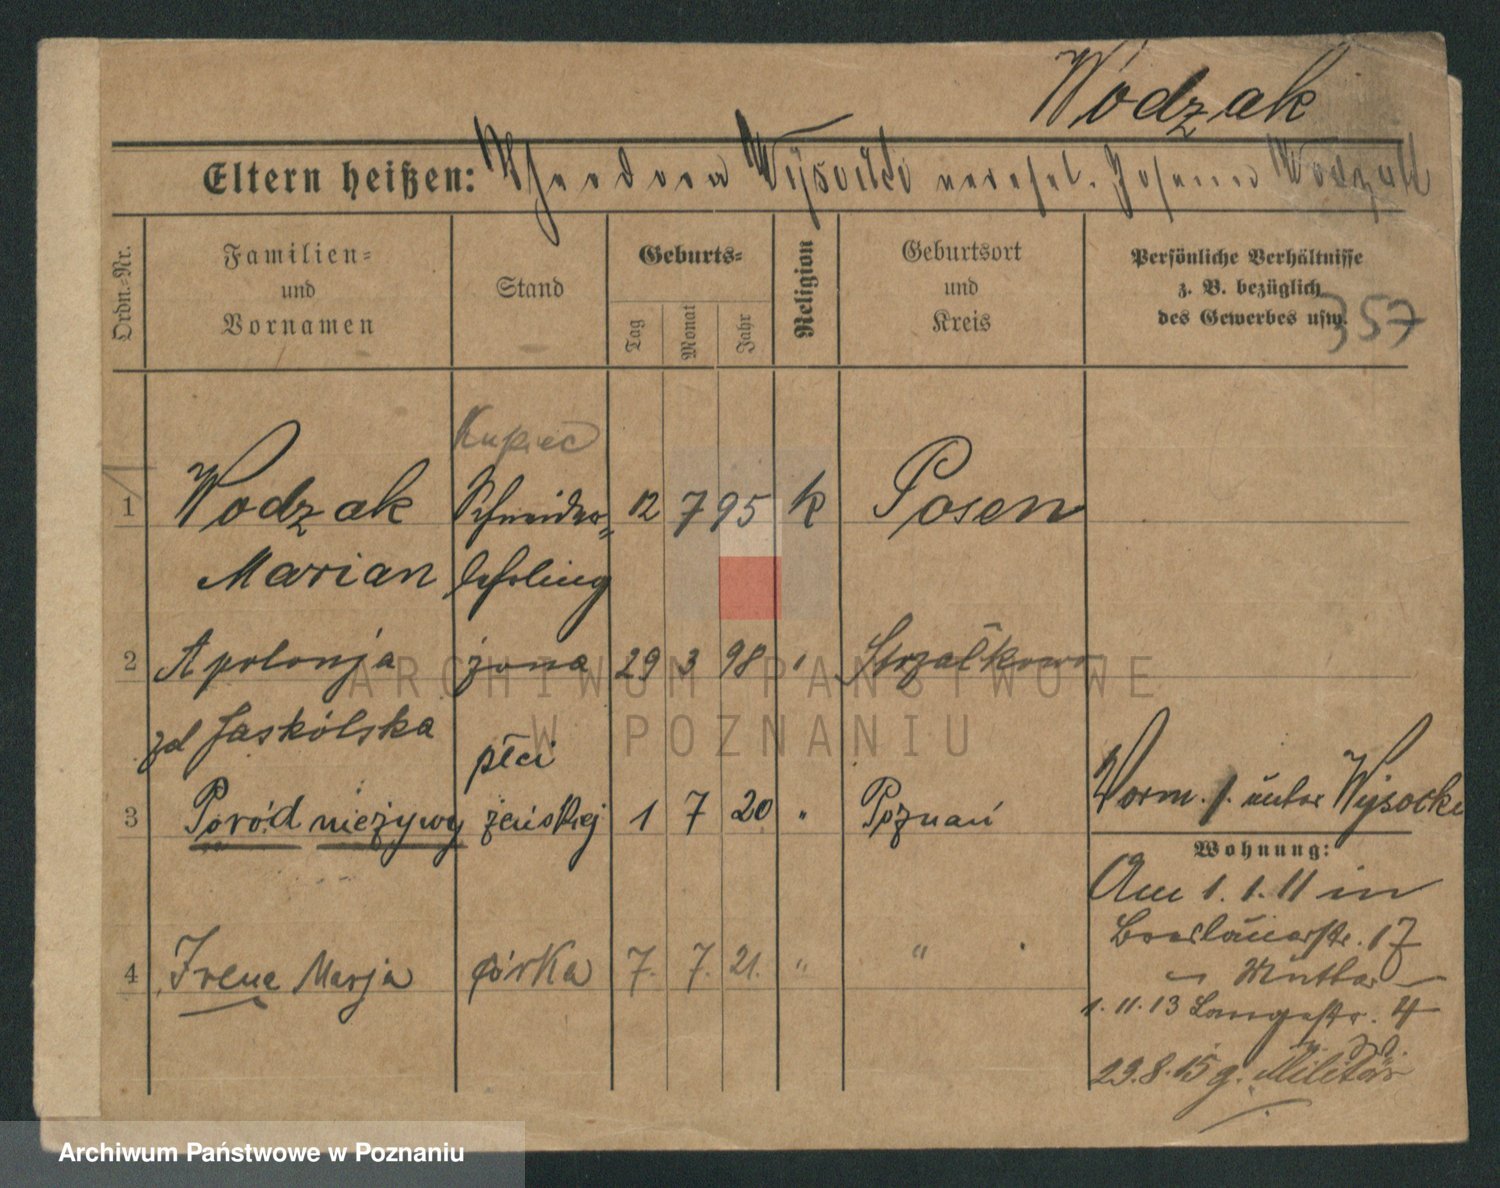 Wodzak
Eltern heißen: Theodora Wysocki verehel. Wodzak
Ordn.-Nr.
Familien-
und
Vornamen
Stand
Geburts-
Tag
Monat
Jahr
Religion
Geburtsort
und
Kreis
Persönliche Verhältnisse
z. B. bezüglich
des Gewerbes usw.
357
Kupiec
1 Wodzak Schneider- 12 7 95 k Posen
Marian lehrling
2 Apolonja żona 29 3 98 " Strzałkowo
zd Jaskólska
płci
3 Poród nieżywy żeńskiej 1 7 20 " Poznań
Vorm. f. unter Wysocki
Wohnung:
Am 1. 1. 11 in
Breslauerstr. 17
Mutter
4 Irena Marja córka 7. 7. 21. " "
1. 11. 13 Langestr. 4
29. 8. 15 g. Militär
ARCHIWUM PAŃSTWOWE
W POZNANIU
Archiwum Państwowe w Poznaniu